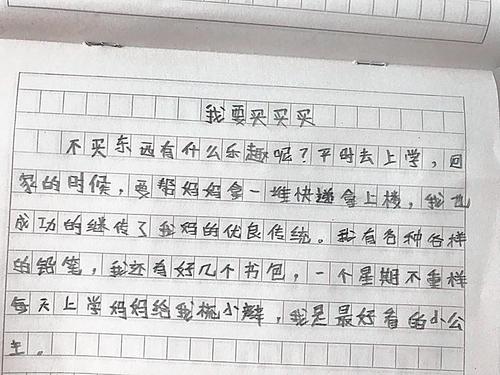 我要买买买
不买东西有什么乐趣呢?平时去上学,回
家的时候,要帮妈妈拿一堆快递拿上楼,我也
成功的继传了我妈的优良传统。我有各种各样
的铅笔,我还有好几个书包,一个星期不重样
每天上学妈妈给我梳小辫,我是最好看的小公
主。